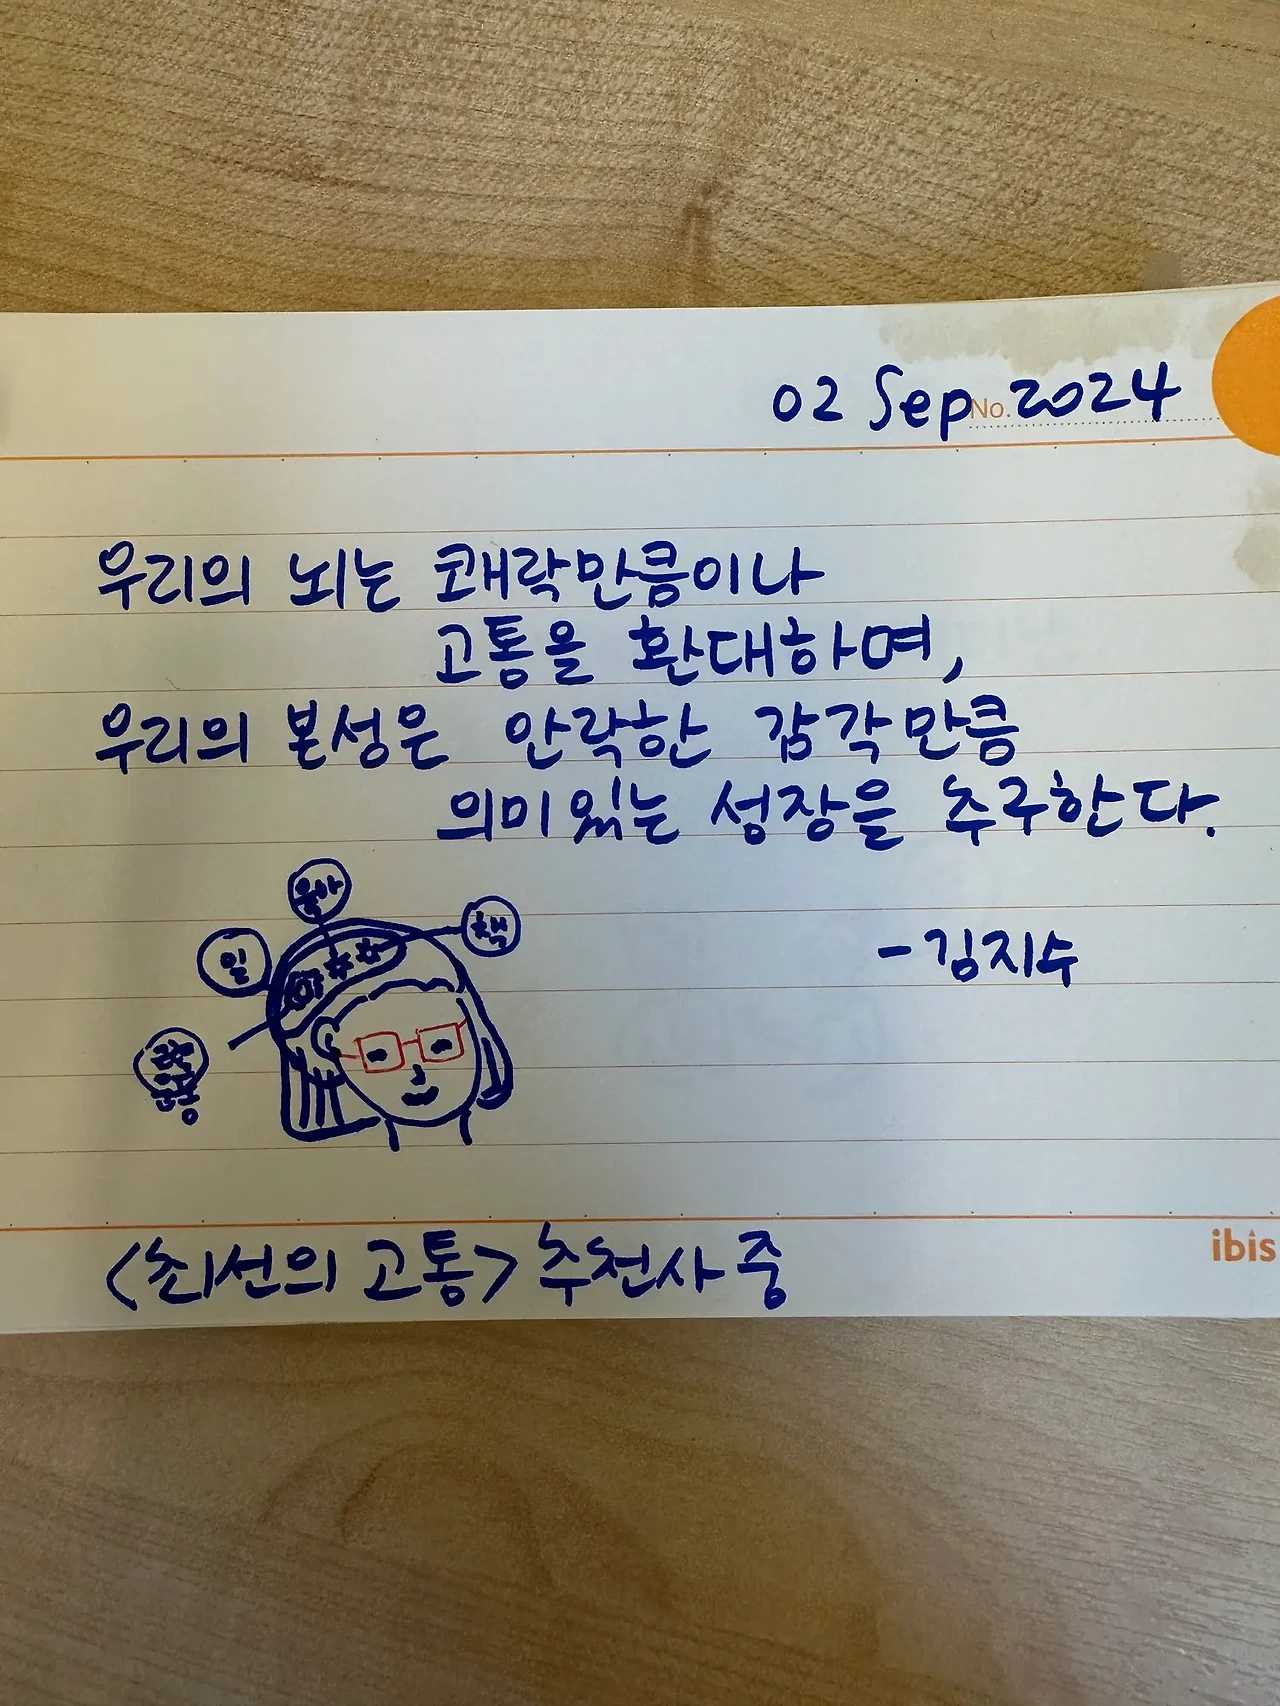 02 Sep No. 2024
우리의 뇌는 쾌락만큼이나
고통을 환대하며,
우리의 본성은 안락한 감각만큼
의미있는 성장을 추구한다.
육아
책
일
- 김지수
<최선의 고통> 추천사 중
ibis